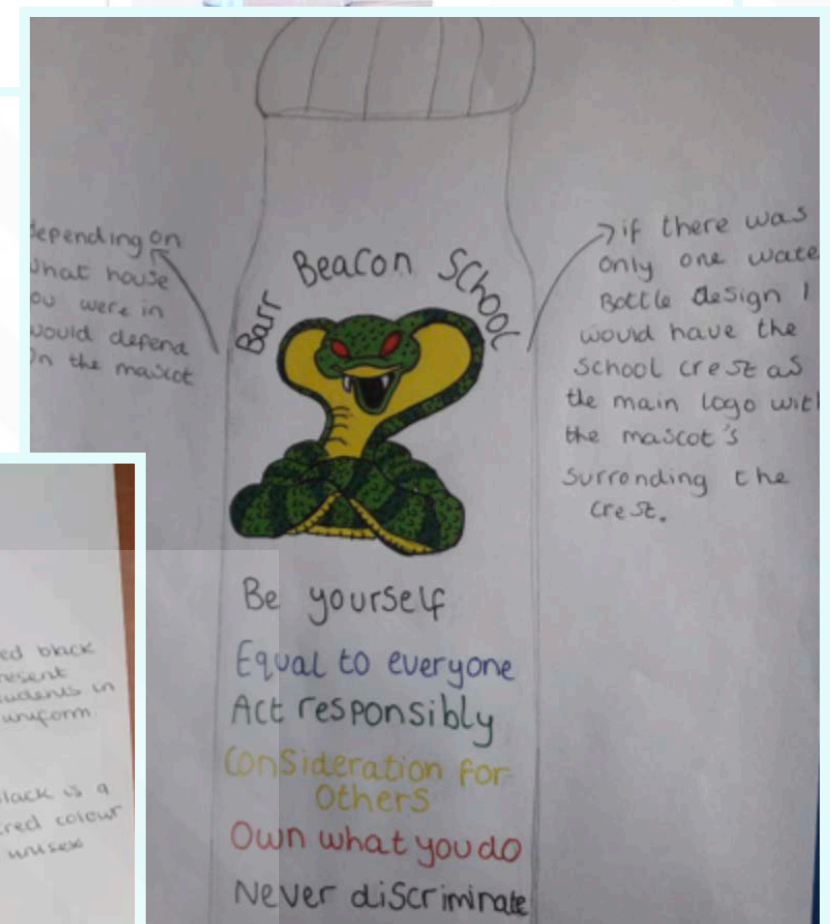 depending on
what house
you were in
would depend
on the mascot
Barr Beacon School
if there was
only one wate
Bottle design I
would have the
School crest as
the main logo with
the mascot's
Surronding the
crest.
Be yourself
Equal to everyone
Act responsibly
Consideration for
Others
Own what you do
Never discriminate
black
students in
uniform
black is a
colour
unisex